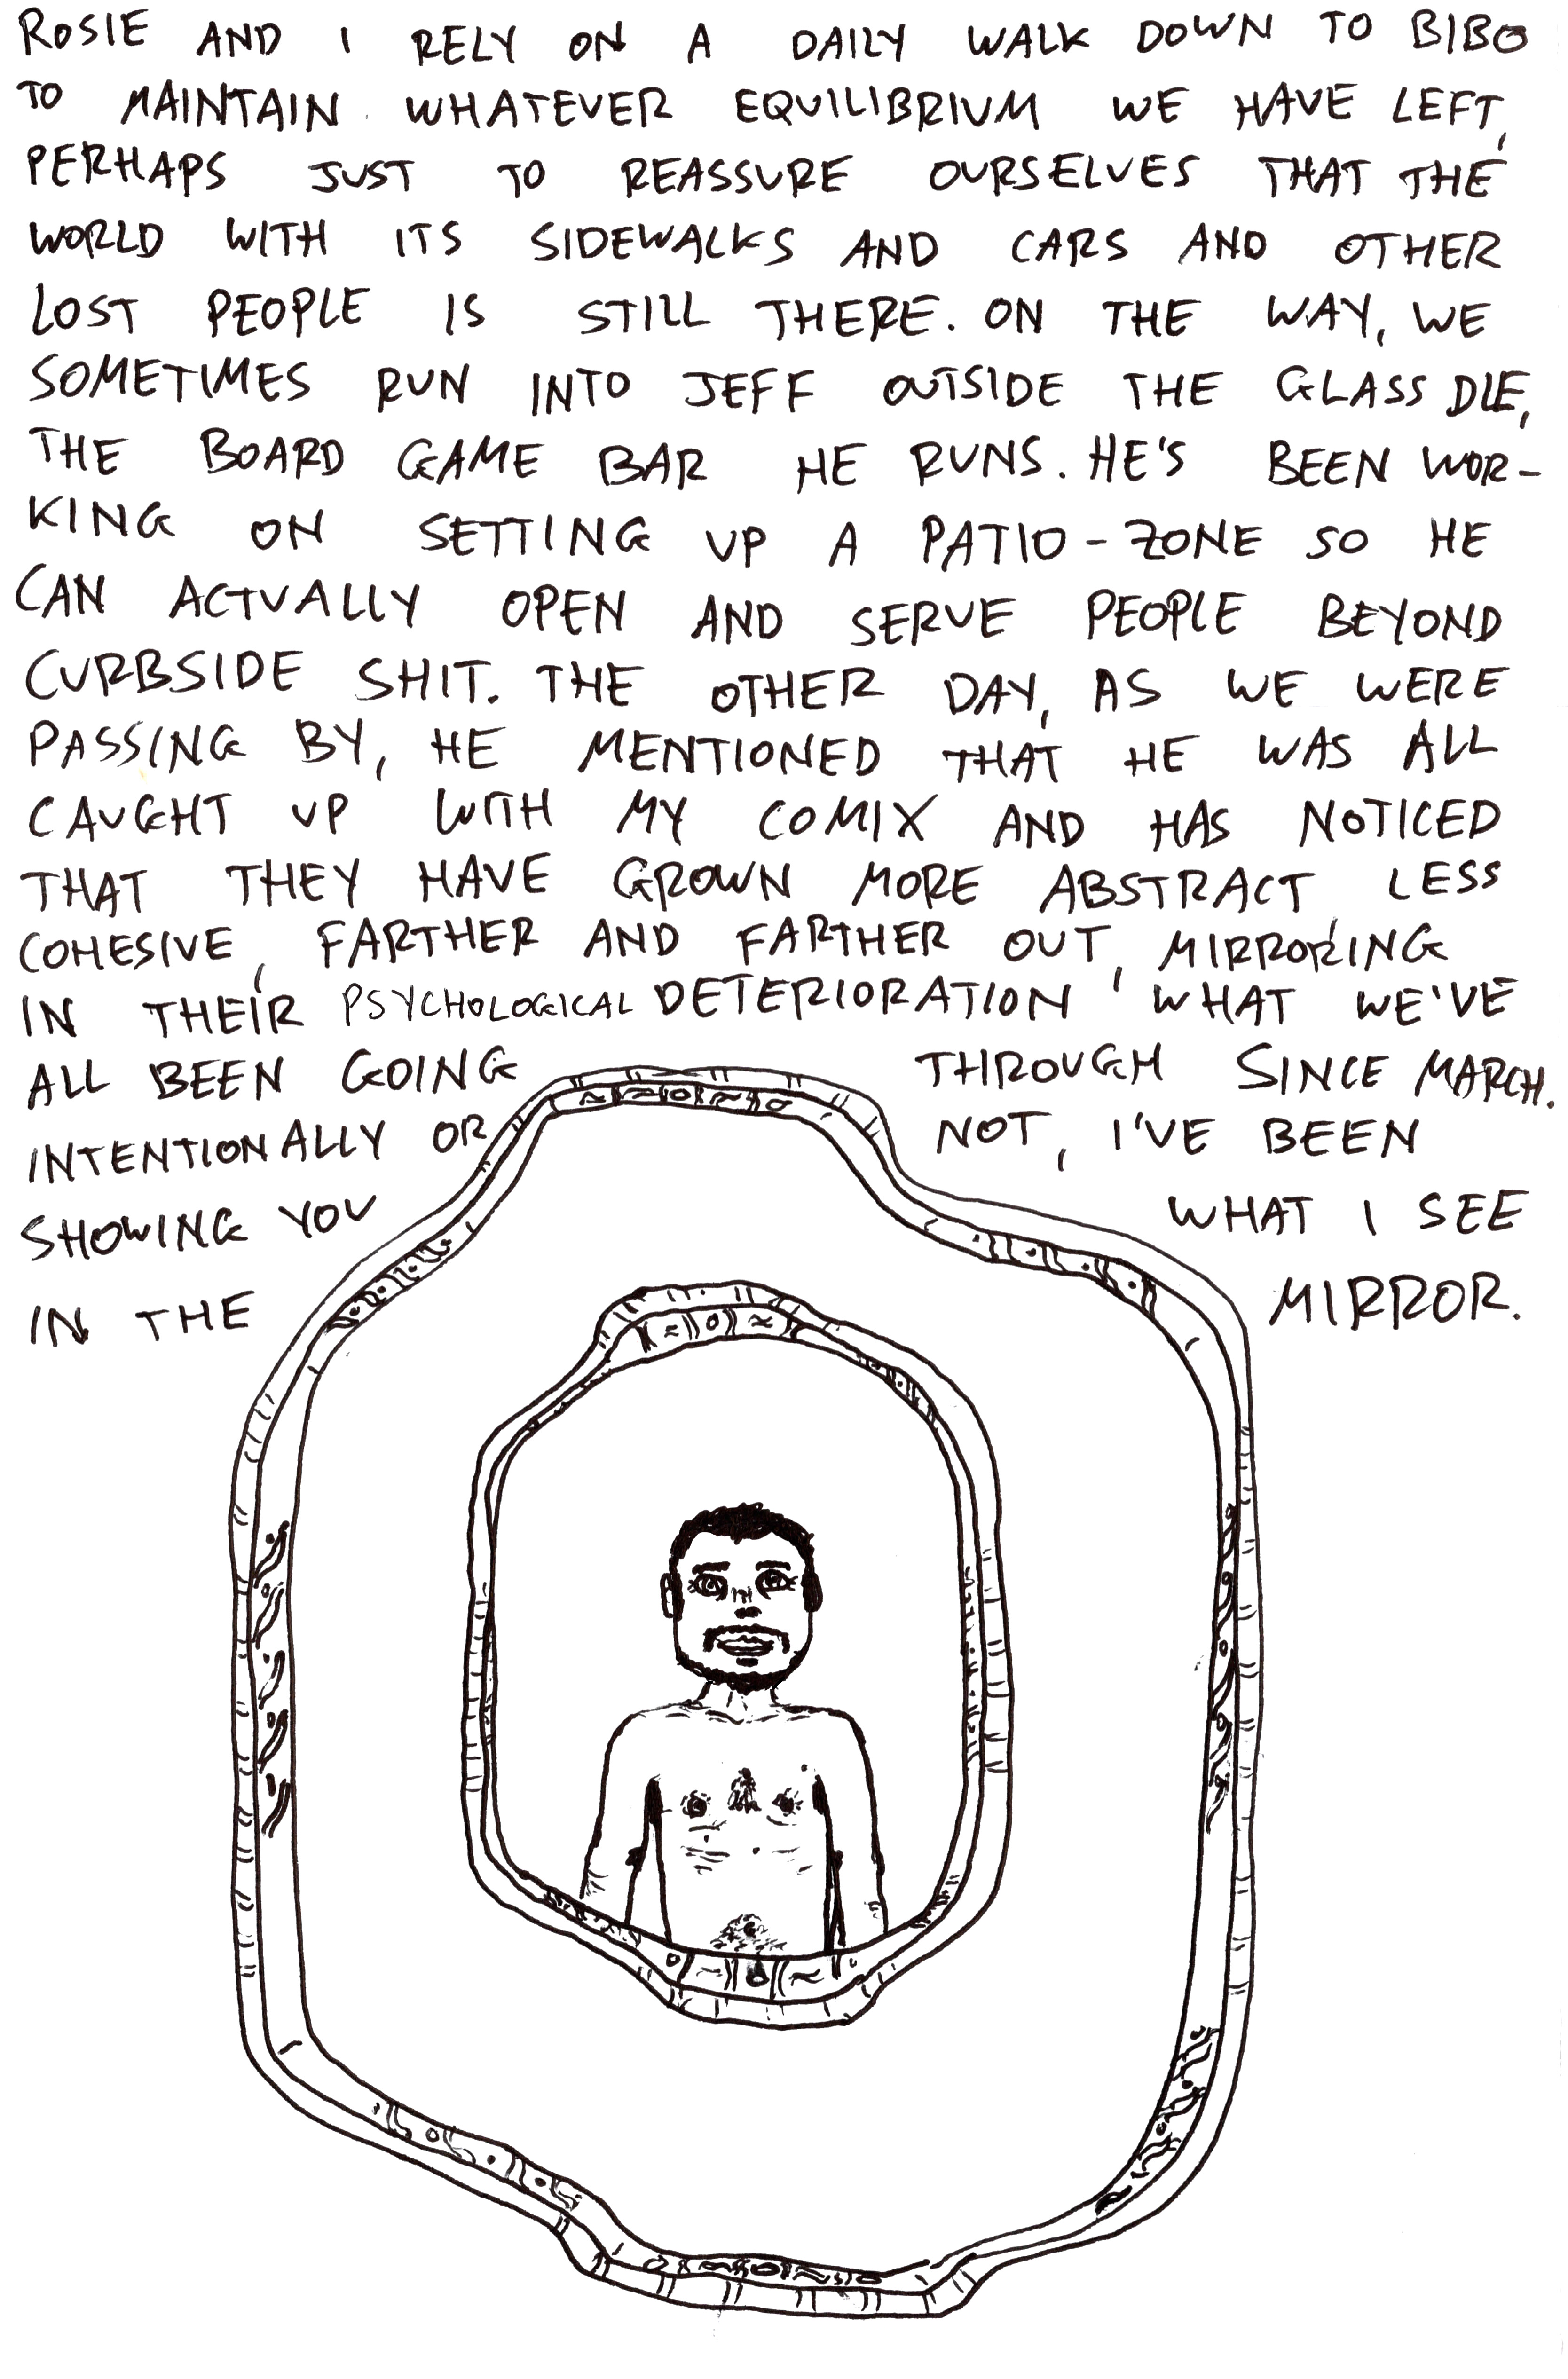 ROSIE AND I RELY ON A DAILY WALK DOWN TO BIBO
TO MAINTAIN WHATEVER EQUILIBRIUM WE HAVE LEFT,
PERHAPS JUST TO REASSURE OURSELVES THAT THE
WORLD WITH ITS SIDEWALKS AND CARS AND OTHER
LOST PEOPLE IS STILL THERE. ON THE WAY, WE
SOMETIMES RUN INTO JEFF OUTSIDE THE GLASS DIE,
THE BOARD GAME BAR HE RUNS. HE'S BEEN WOR-
KING ON SETTING UP A PATIO-ZONE SO HE
CAN ACTUALLY OPEN AND SERVE PEOPLE BEYOND
CURBSIDE SHIT. THE OTHER DAY, AS WE WERE
PASSING BY, HE MENTIONED THAT HE WAS ALL
CAUGHT UP WITH MY COMIX AND HAS NOTICED
THAT THEY HAVE GROWN MORE ABSTRACT LESS
COHESIVE, FARTHER AND FARTHER OUT, MIRRORING
IN THEIR PSYCHOLOGICAL DETERIORATION WHAT WE'VE
ALL BEEN GOING THROUGH SINCE MARCH.
INTENTIONALLY OR NOT, I'VE BEEN
SHOWING YOU WHAT I SEE
IN THE MIRROR.